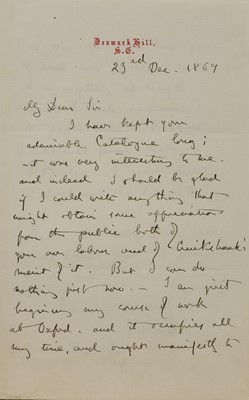 Denmark Hill,
S.E.
23rd Dec. 1869
My Dear Sir
I have kept your
admirable Catalogue long;
it was very interesting to me.
and indeed I should be glad
if I could write anything that
might obtain some appreciation
from the public both of
your own labour and of Cruikshank's
merit of it. But I can do
nothing just now — I am just
beginning my course of work
at Oxford. and it occupies all
my time, and ought manifestly to